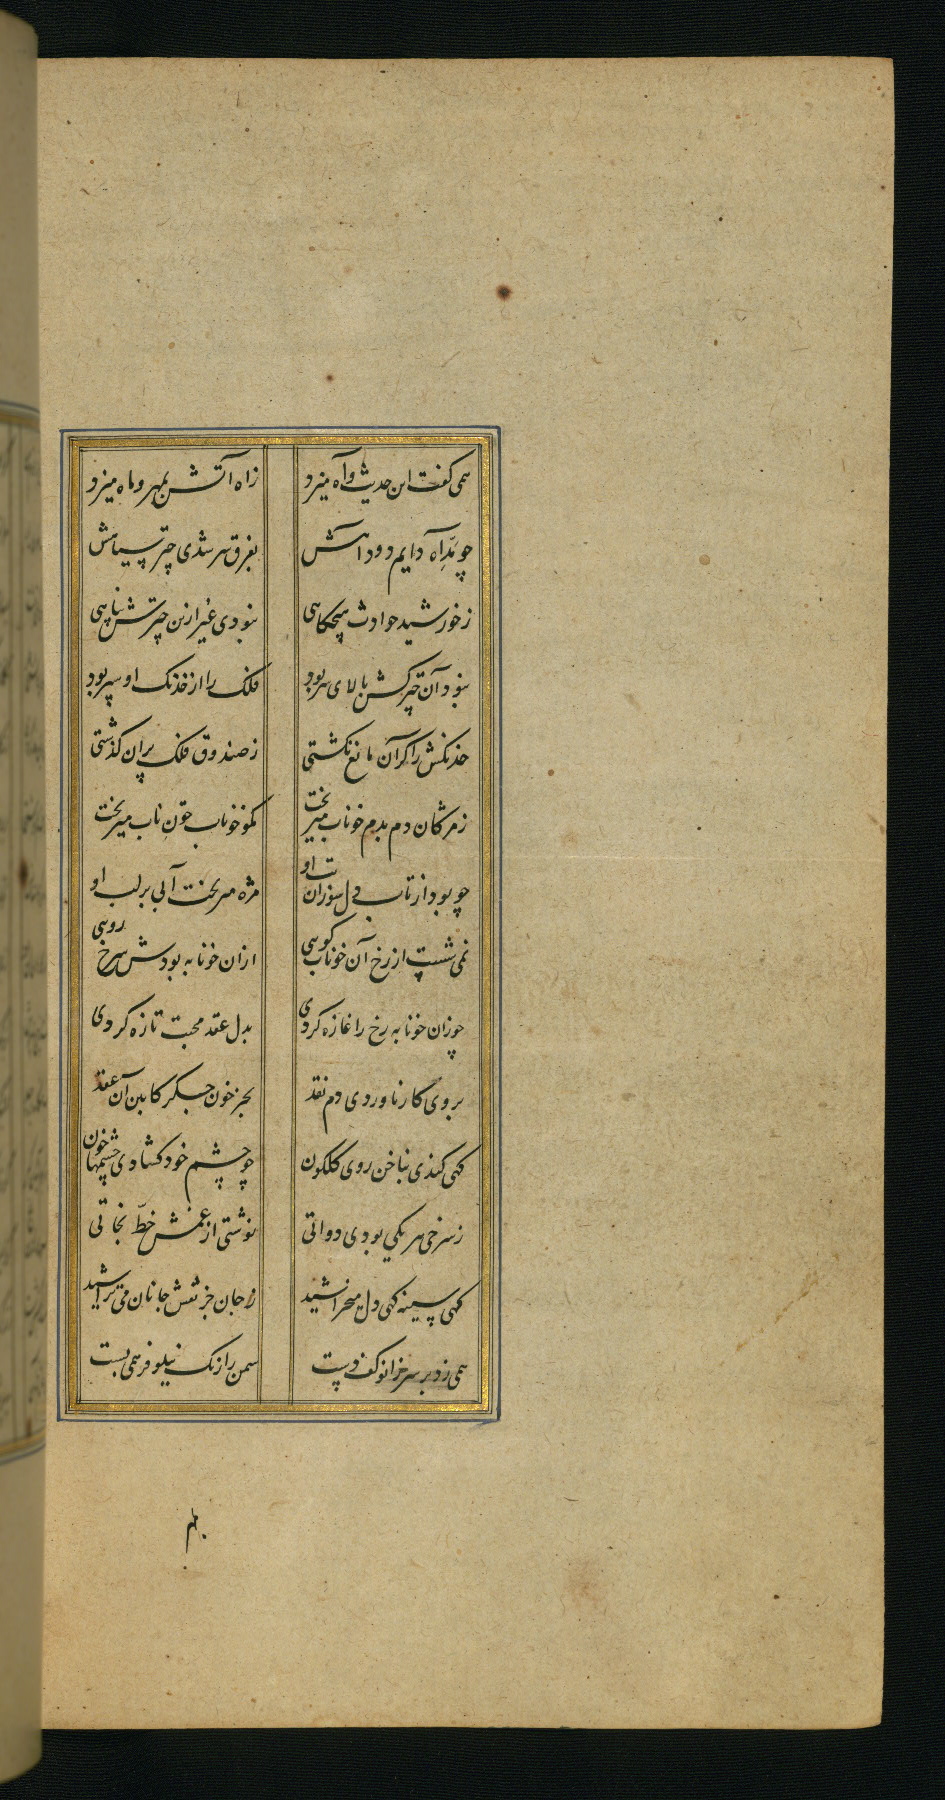 همی گفت این حدیث و آه میزد زاه آتش بمهر و ماه میزد
چو مدّ آه دایم دود آهش بفرق سر شدی چتر سیاهش
ز خورشید حوادث هیچکاهی نبودی غیر ازین چترش پناهی
نبود آن تیر کش بالای سر بود فلک را از خدنک او سپر بود
خدنکش را کر آن مانع نکشتی ز صندوق فلک پران کذشتی
ز مژکان دم بدم خوناب میریخت مکو خوناب خون ناب میریخت
چو بود از تاب دل سوزان تب او مژه میریخت آبی بر لب او
نمی شست از رخ آن خوناب کویی از ان خونابه بودش سرخ رویی
چو زان خونابه رخ را غازه کردی بدل عقد محبت تازه کردی
بروی کار ناوردی دم نقد بجز خون جکر کابین آن عقد
کهی کندی بناخن روی کلکون چو چشم خود کشادی چشمها خون
ز سرخی هر یکی بودی دواتی نوشتی از غمش خطّ نجاتی
کهی سینه کهی دل میخراشید ز جان جز نقش جانان می تراشید
همی زد بر سر زانو کف دست سمن را رنک نیلوفر همی بست